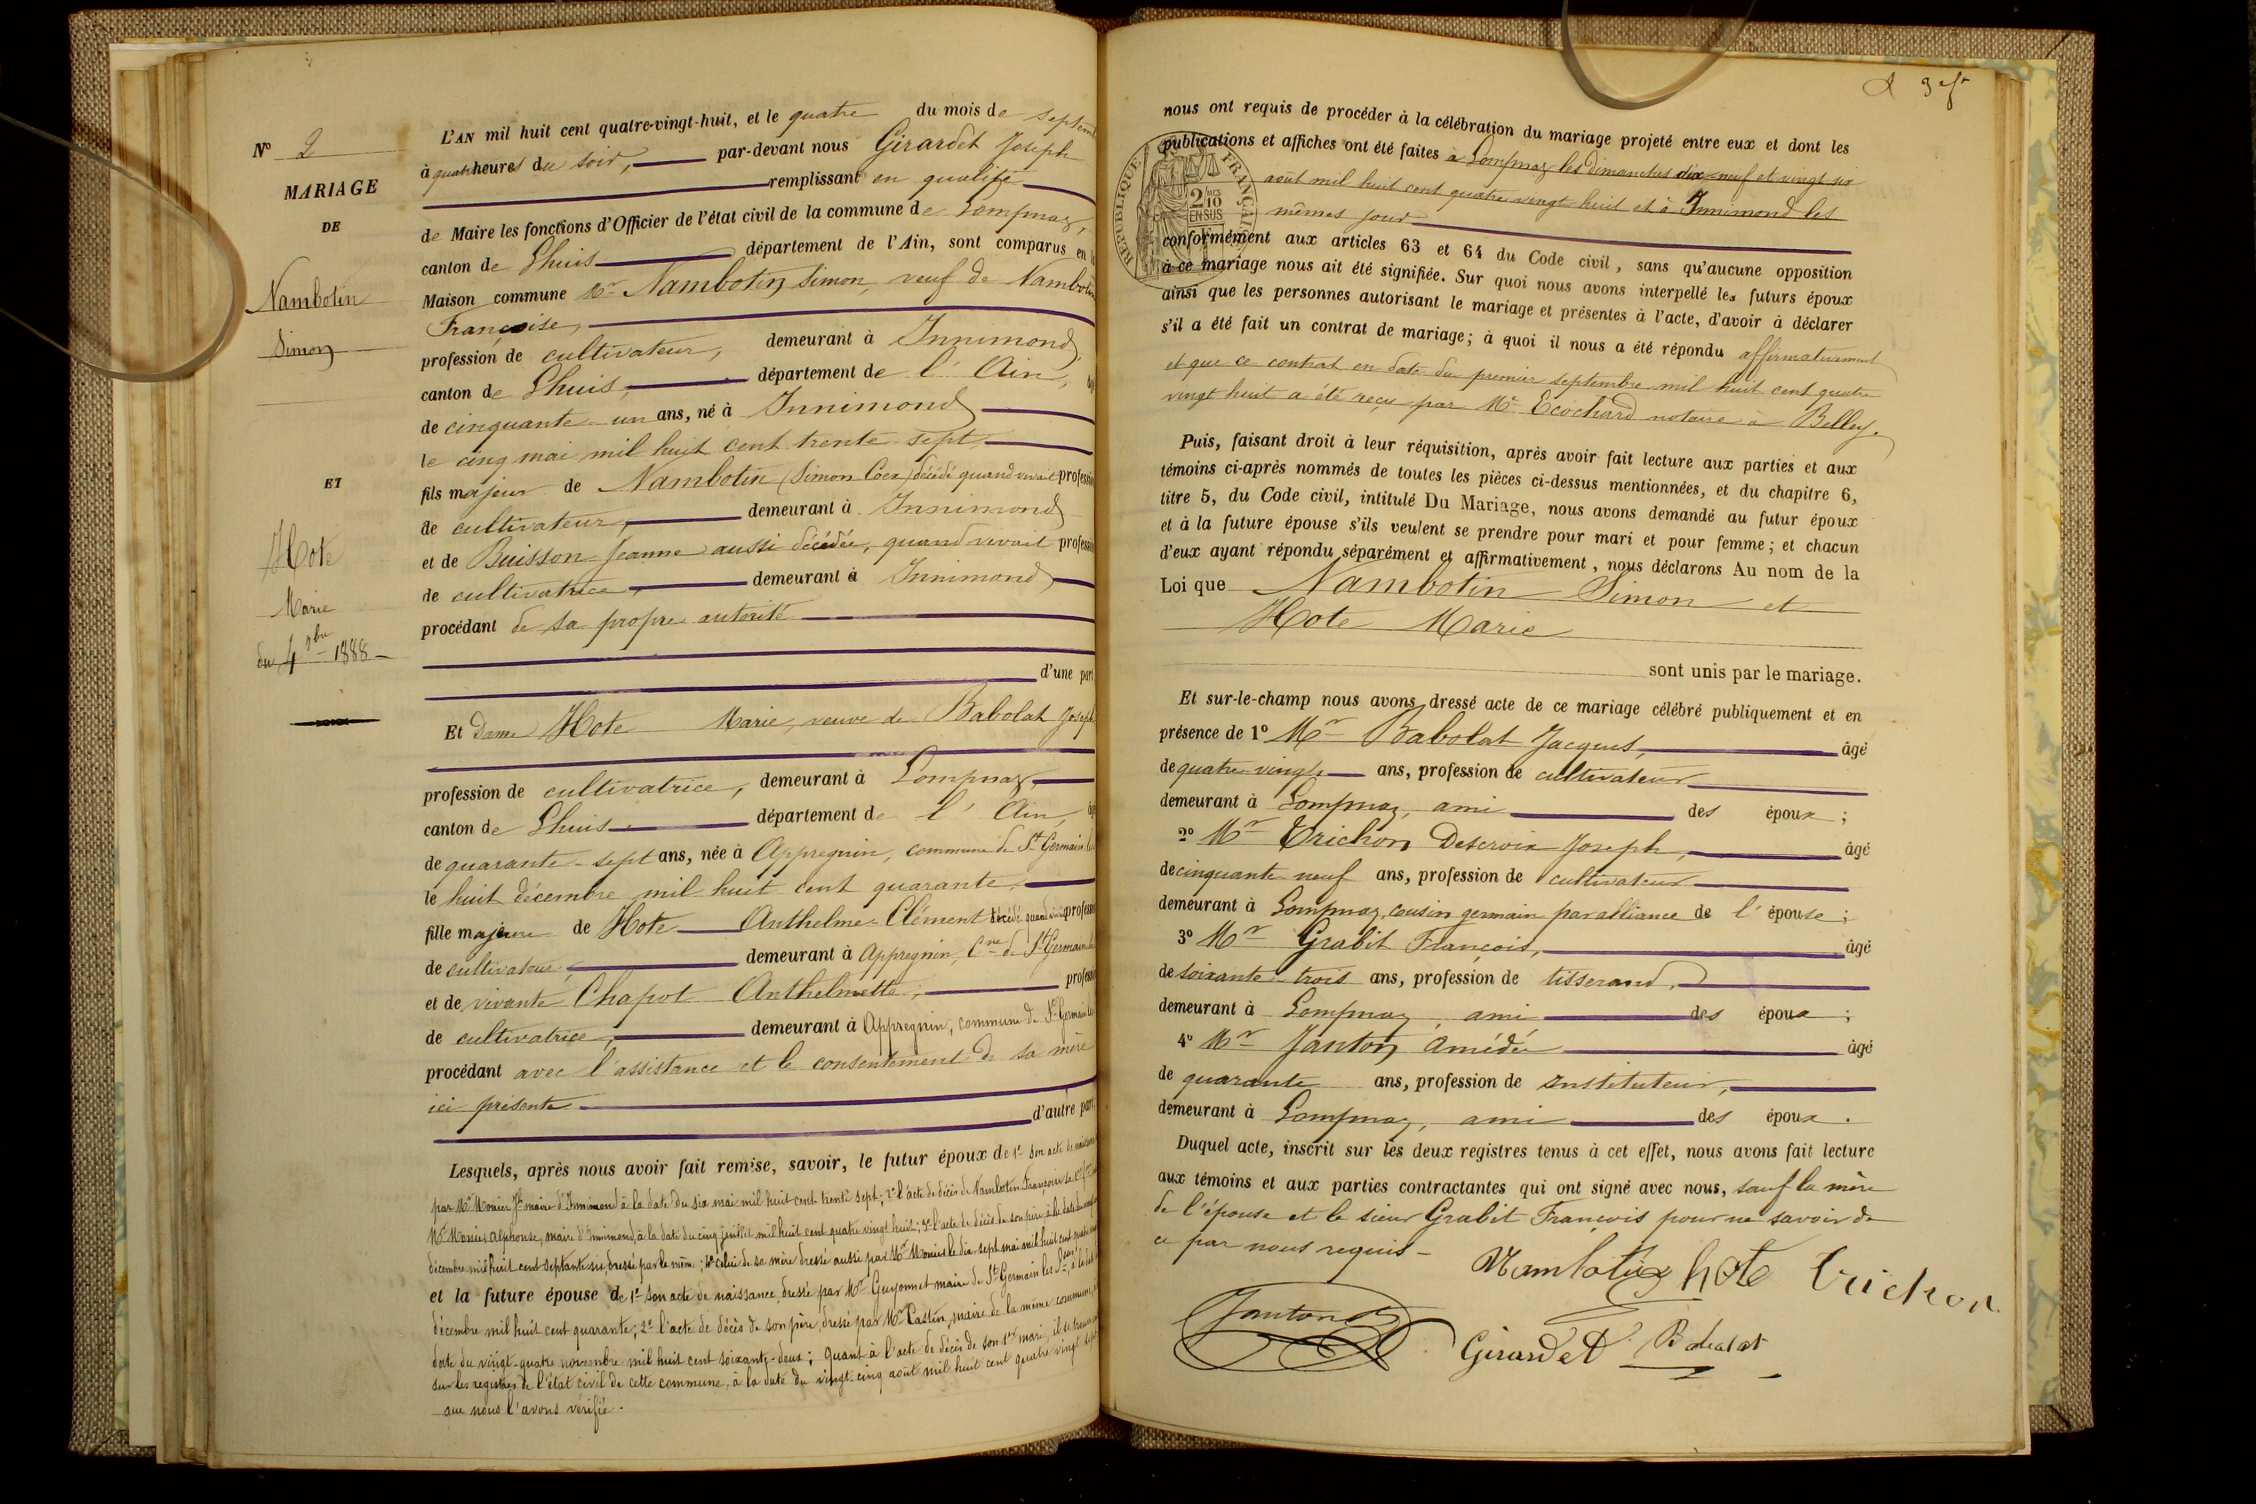 N° 2
MARIAGE
DE
Nambotin
Simon
ET
Hote
Marie
du 4 9bre 1888
L'AN mil huit cent quatre-vingt-huit, et le quatre du mois de septem
à quatre heures du soir, par-devant nous Girardet Joseph
remplissant en qualité
de Maire les fonctions d'Officier de l'état civil de la commune de Lompnaz,
canton de Lhuis département de l'Ain, sont comparus en
Maison commune Mr Nambotin Simon, veuf de Nambotin
Françoise,
profession de cultivateur, demeurant à Innimond,
canton de Lhuis, département de l'Ain,
de cinquante-un ans, né à Innimond
le cinq mai mil huit cent trente-sept,
fils majeur de Nambotin (Simon Coex) décédé quand vivait profession
de cultivateur, demeurant à Innimond
et de Buisson Jeanne aussi décédée, quand vivait profession
de cultivatrice, demeurant à Innimond
procédant de sa propre autorité
d'une part
Et Dame Hote Marie, veuve de Babolat Joseph
profession de cultivatrice, demeurant à Lompnaz,
canton de Lhuis, département de l'Ain,
de quarante-sept ans, née à Appregnin, commune de St Germain
le huit décembre mil huit cent quarante,
fille majeure de Hote Anthelme-Clément décédé quand vivait profession
de cultivateur, demeurant à Appregnin, Cne de St Germain
et de vivante Chapot Anthelmette, profession
de cultivatrice, demeurant à Appregnin, commune de St Germain
procédant avec l'assistance et le consentement de sa mère
ici présente
d'autre part
Lesquels, après nous avoir fait remise, savoir, le futur époux de 1° son acte de naissance
par Mr Monier maire d'Innimond à la date du six mai mil huit cent trente sept; 2° l'acte de décès de Nambotin Françoise
Mr Monier Alphonse, maire d'Innimond, à la date du cinq juillet mil huit cent quatre vingt huit; 3° l'acte de décès de son père à la date du
décembre mil huit cent septante six, dressé par le même; 4° celui de sa mère dressé aussi par Mr Monier le dix-sept mai mil huit cent
et la future épouse de 1° son acte de naissance, dressé par Mr Guyonnet maire de St Germain les
décembre mil huit cent quarante; 2° l'acte de décès de son père, dressé par Mr Castin, maire de la même commune,
date du vingt-quatre novembre mil huit cent soixante-deux; quant à l'acte de décès de son 1er mari, il se trouve
sur les registres de l'état civil de cette commune, à la date du vingt-cinq août mil huit cent quatre vingt sept
que nous l'avons vérifié.
nous ont requis de procéder à la célébration du mariage projeté entre eux et dont les
publications et affiches ont été faites à Lompnaz les dimanches dix-neuf et vingt six
août mil huit cent quatre-vingt huit et à Innimond les
mêmes jour
RÉPUBLIQUE FRANÇAISE
2/10 EN SUS
conformément aux articles 63 et 64 du Code civil, sans qu'aucune opposition
à ce mariage nous ait été signifiée. Sur quoi nous avons interpellé les futurs époux
ainsi que les personnes autorisant le mariage et présentes à l'acte, d'avoir à déclarer
s'il a été fait un contrat de mariage; à quoi il nous a été répondu affirmativement
et que ce contrat en date du premier septembre mil huit cent quatre
vingt huit a été reçu par Me Ecochard notaire à Belley.
Puis, faisant droit à leur réquisition, après avoir fait lecture aux parties et aux
témoins ci-après nommés de toutes les pièces ci-dessus mentionnées, et du chapitre 6,
titre 5, du Code civil, intitulé Du Mariage, nous avons demandé au futur époux
et à la future épouse s'ils veulent se prendre pour mari et pour femme; et chacun
d'eux ayant répondu séparément et affirmativement, nous déclarons Au nom de la
Loi que Nambotin Simon et
Hote Marie
sont unis par le mariage.
Et sur-le-champ nous avons dressé acte de ce mariage célébré publiquement et en
présence de 1° Mr Babolat Jacques, âgé
de quatre vingts ans, profession de cultivateur
demeurant à Lompnaz, ami des époux;
2° Mr Trichon Descroix Joseph, âgé
de cinquante neuf ans, profession de cultivateur
demeurant à Lompnaz, cousin germain par alliance de l'épouse;
3° Mr Grabit François, âgé
de soixante-trois ans, profession de tisserand,
demeurant à Lompnaz, ami des époux;
4° Mr Janton Amédée âgé
de quarante ans, profession de instituteur,
demeurant à Lompnaz, ami des époux.
Duquel acte, inscrit sur les deux registres tenus à cet effet, nous avons fait lecture
aux témoins et aux parties contractantes qui ont signé avec nous, sauf la mère
de l'épouse et le sieur Grabit François pour ne savoir de
ce par nous requis
Nambotin hote trichon
Janton Girardet Babolat